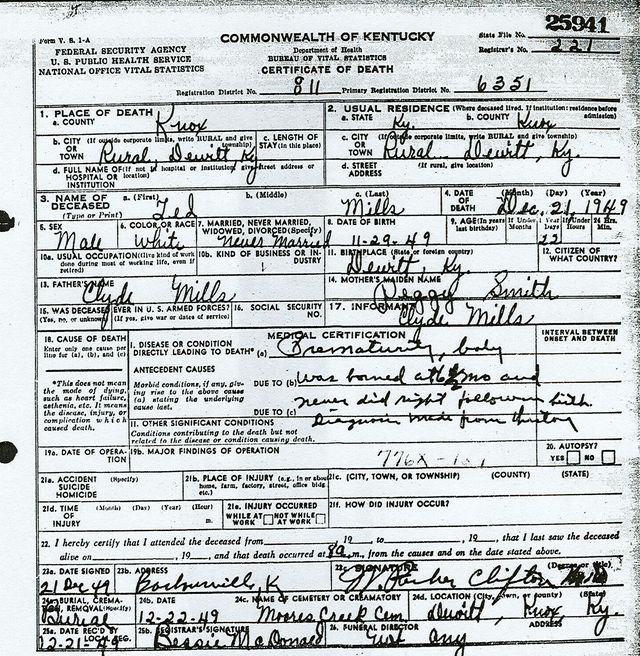 25941
Form V. S. 1-A
COMMONWEALTH OF KENTUCKY
State File No.
FEDERAL SECURITY AGENCY
Department of Health
Registrar's No. 221
U. S. PUBLIC HEALTH SERVICE
BUREAU OF VITAL STATISTICS
NATIONAL OFFICE VITAL STATISTICS
CERTIFICATE OF DEATH
Registration District No. 811 Primary Registration District No. 6351
1. PLACE OF DEATH
a. COUNTY Knox
2. USUAL RESIDENCE (Where deceased lived. If institution: residence before admission)
a. STATE Ky. b. COUNTY Knox
b. CITY (If outside corporate limits, write RURAL and give township) OR TOWN Rural, Dewitt, Ky
c. LENGTH OF STAY (in this place)
c. CITY (If outside corporate limits, write RURAL and give township) OR TOWN Rural Dewitt, Ky.
d. FULL NAME OF (If not in hospital or institution, give street address or location) HOSPITAL OR INSTITUTION
d. STREET ADDRESS (If rural, give location)
3. NAME OF DECEASED (Type or Print) a. (First) Ted b. (Middle) c. (Last) Mills
4. DATE OF DEATH (Month) (Day) (Year) Dec. 21, 1949
5. SEX Male
6. COLOR OR RACE White
7. MARRIED, NEVER MARRIED, WIDOWED, DIVORCED (Specify) Never Married
8. DATE OF BIRTH 11-29-49
9. AGE (In years last birthday) If Under 1 Year Months Days 22 If Under 24 Hrs. Hours Min.
10a. USUAL OCCUPATION (Give kind of work done during most of working life, even if retired)
10b. KIND OF BUSINESS OR INDUSTRY
11. BIRTHPLACE (State or foreign country) Dewitt, Ky.
12. CITIZEN OF WHAT COUNTRY?
13. FATHER'S NAME Clyde Mills
14. MOTHER'S MAIDEN NAME Peggy Smith
15. WAS DECEASED EVER IN U. S. ARMED FORCES? (Yes, no, or unknown) (If yes, give war or dates of service)
16. SOCIAL SECURITY NO.
17. INFORMANT Clyde Mills
18. CAUSE OF DEATH
Enter only one cause per line for (a), (b), and (c)
MEDICAL CERTIFICATION
INTERVAL BETWEEN ONSET AND DEATH
I. DISEASE OR CONDITION DIRECTLY LEADING TO DEATH* (a) Prematurity, baby
*This does not mean the mode of dying, such as heart failure, asthenia, etc. It means the disease, injury, or complication which caused death.
ANTECEDENT CAUSES
Morbid conditions, if any, giving rise to the above cause (a) stating the underlying cause last.
DUE TO (b) was borned at 6½ mo and
DUE TO (c) never did right following birth
Diagnosis made from history
II. OTHER SIGNIFICANT CONDITIONS
Conditions contributing to the death but not related to the disease or condition causing death.
19a. DATE OF OPERATION
19b. MAJOR FINDINGS OF OPERATION
20. AUTOPSY? YES NO
21a. ACCIDENT SUICIDE HOMICIDE (Specify)
21b. PLACE OF INJURY (e.g., in or about home, farm, factory, street, office bldg etc.)
21c. (CITY, TOWN, OR TOWNSHIP) (COUNTY) (STATE)
21d. TIME OF INJURY (Month) (Day) (Year) (Hour) m.
21e. INJURY OCCURRED WHILE AT WORK NOT WHILE AT WORK
21f. HOW DID INJURY OCCUR?
22. I hereby certify that I attended the deceased from 19 to 19 , that I last saw the deceased
alive on , 19 , and that death occurred at 8a m., from the causes and on the date stated above.
23a. DATE SIGNED 21 Dec 49
23b. ADDRESS Barbourville, K
23c. SIGNATURE (Degree or title) Clifton MD
24a. BURIAL, CREMATION, REMOVAL (Specify) Burial
24b. DATE 12-22-49
24c. NAME OF CEMETERY OR CREMATORY Moores Creek Cem.
24d. LOCATION (City, town, or county) (State) Dewitt, Knox Ky.
25a. DATE REC'D BY LOCAL REG. 12-21-49
25b. REGISTRAR'S SIGNATURE Bessie McDonald
26. FUNERAL DIRECTOR ADDRESS Not Any